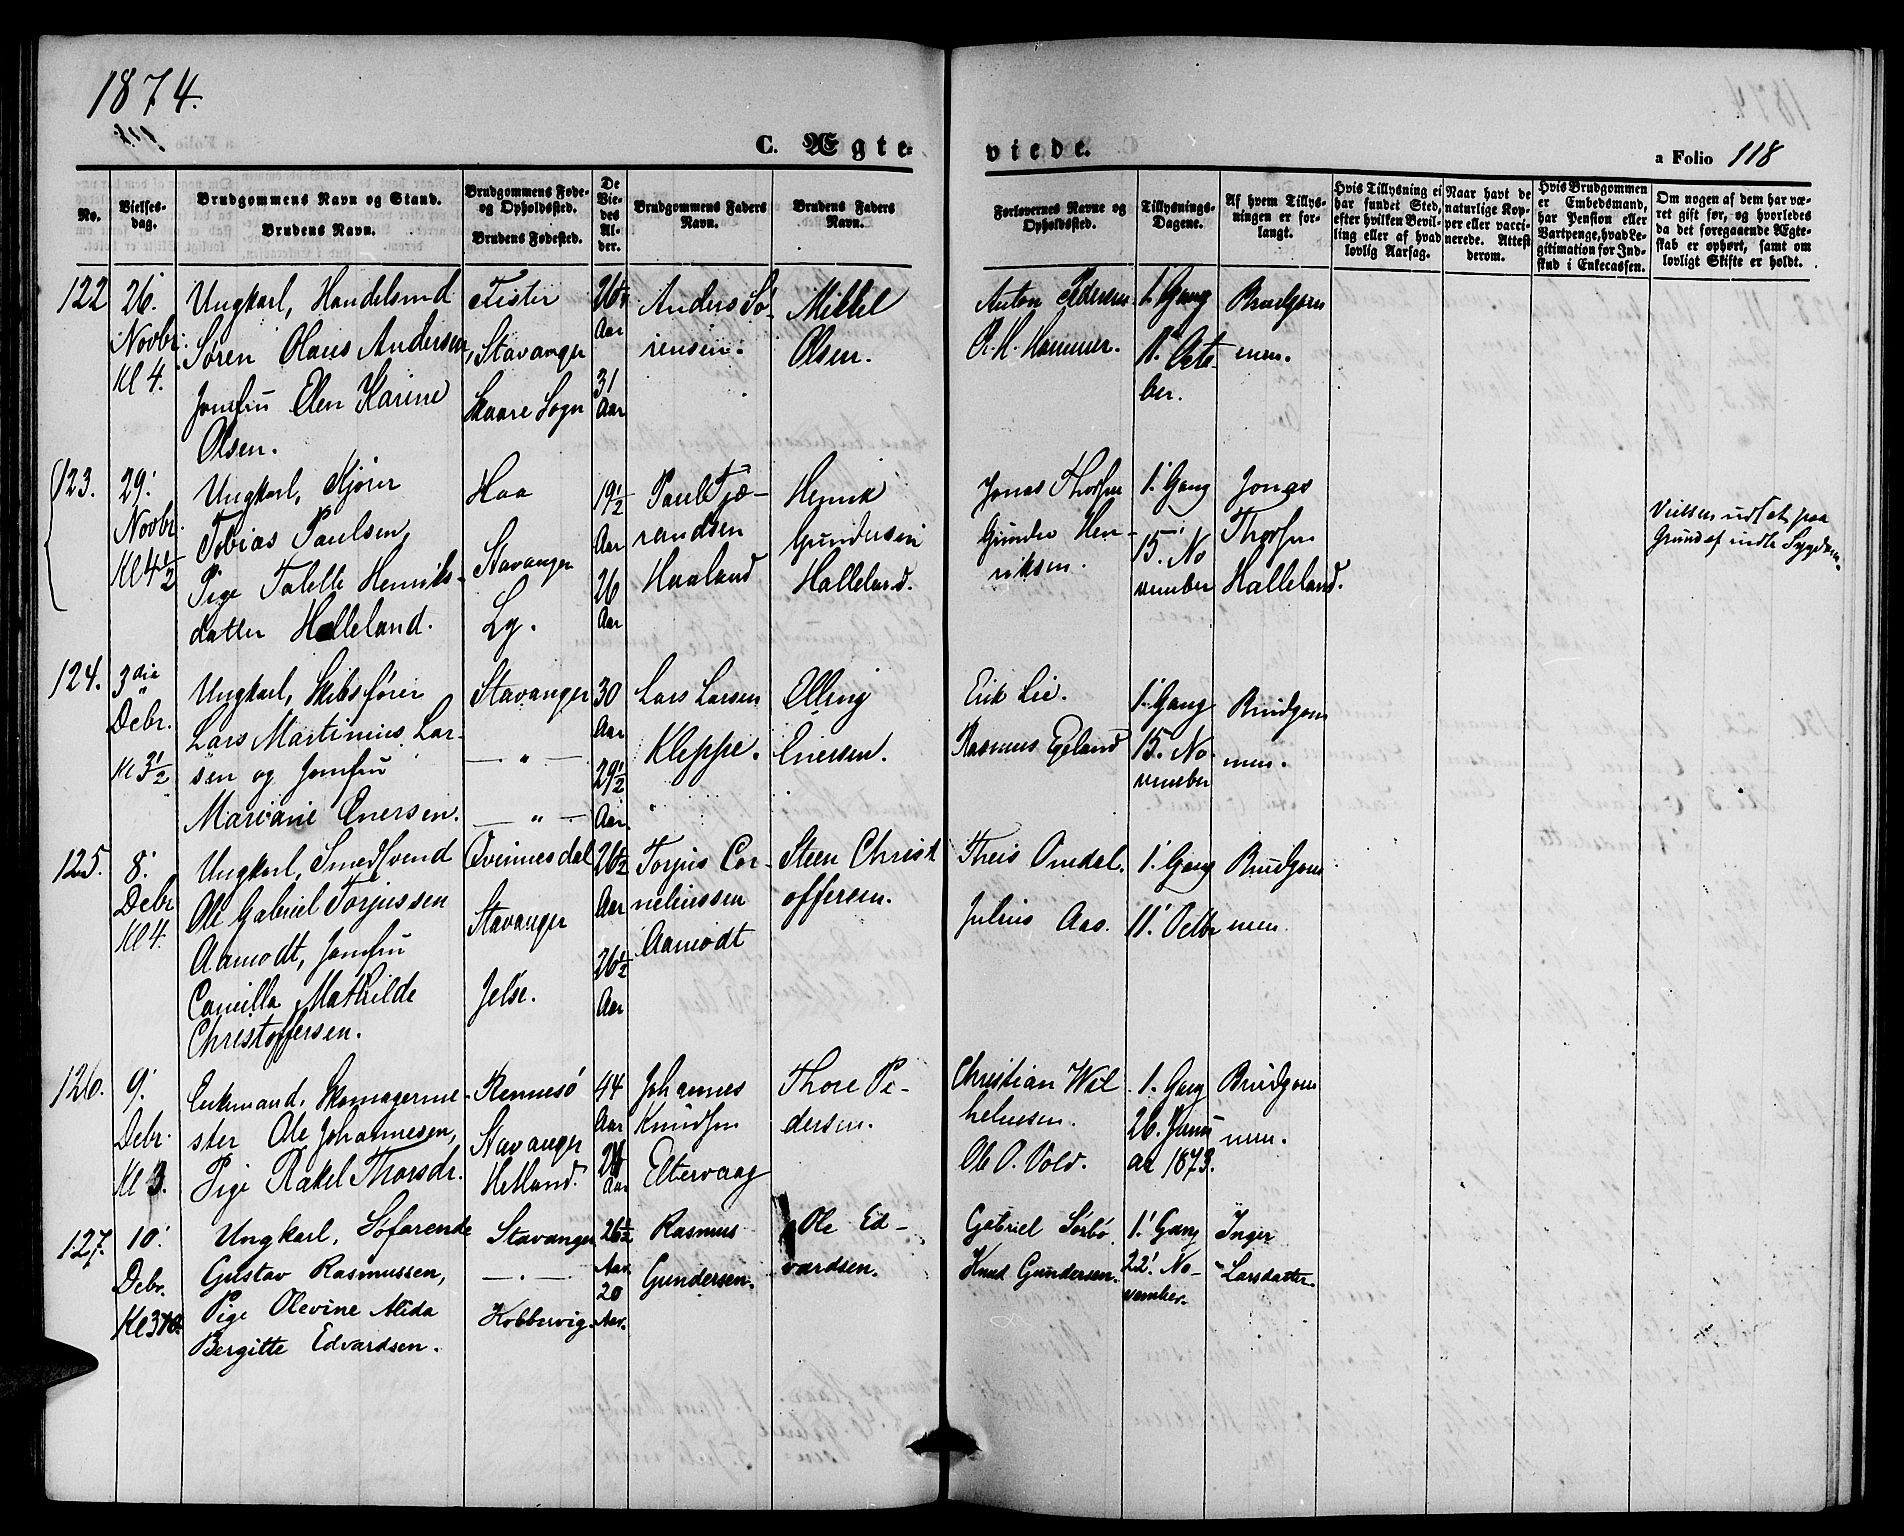 1874.
C. Ægte-
viede.
a Folio 118
No.
Vielses-
dag.
Brudgommens Navn og Stand.
Brudens Navn.
Brudgommens Føde-
og Opholdssted.
Brudens Fødested.
De
Vie-
des
Al-
der.
Brudgommens Faders
Navn.
Brudens Faders
Navn.
Forlovernes Navne og
Opholdssted.
Tillysnings-
Dagene.
Af hvem Tillys-
ningen er for-
langt.
Hvis Tillysning ei
har fundet Sted,
efter hvilken Bevil-
ling eller af hvad
lovlig Aarsag.
Naar havt de
naturlige Kop-
per eller vacci-
nerede. Attest
derom.
Hvis Brudgommen
er Embedsmand,
har Pension eller
Vartpenge, hvad Le-
gitimation for Ind-
skud i Enkecassen.
Om nogen af dem har væ-
ret gift før, og hvorledes
da det foregaaende Ægte-
skab er ophørt, samt om
lovligt Skifte er holdt.
122
26.
Novbr.
Kl 4.
Ungkarl, Handelsmd
Søren Olaus Andersen,
Jomfru Elen Karine
Olsen.
Fister
Stavanger
Skaare Sogn
26½
Aar
31
Aar
Anders Sö-
rensen.
Mikkel
Olsen.
Anton Pedersen.
R. H. Hammer.
1. Gang
11. Octo-
ber.
Brudgom
men.
123.
29.
Novbr.
Kl 4½
Ungkarl, Kjører
Tobias Paulsen,
Pige Talette Henriks-
datter Halleland.
Haa
Stavanger
Ly.
19½
Aar
26
Aar
Paul Tjø-
randsen
Haaland
Henrik
Gundersen
Halleland.
Jonas Thorsen
Gunder Hen-
riksen.
1. Gang
15. No
vember
Jonas
Thorsen
Halleland.
Vielsen udsat paa
Grund af indtr. Sygdom.
124.
3die
Debr.
Kl 3½
Ungkarl, Skibsfører
Lars Martinius Lar-
sen og Jomfru
Mariane Enersen.
Stavanger
— " —
— " —
30
Aar
29½
Aar.
Lars Larsen
Kleppe.
Elling
Enersen.
Erik Lie.
Rasmus Egeland
1. Gang
15. No-
vember
Brudgom
men.
125.
8.
Debr
Kl 4.
Ungkarl, Smedsvend
Ole Gabriel Torjussen
Aamodt, Jomfru
Camilla Mathilde
Christoffersen.
Qvinnesdal
Stavanger
Jelse.
26½
Aar
26½
Aar
Torjus Cor-
neliussen
Aamodt
Steen Christ
offersen.
Theis Omdal.
Julius Aas.
1. Gang
11. Octbr
Brudgom
men.
126.
9.
Debr.
Kl 3.
Enkemand, Skomagerme-
ster Ole Johannesen,
Pige Rakel Thorsdr.
Rennesö
Stavanger
Hetland.
44
Aar
Aar
Johannes
Knudsen
Eltervaag
Thore Pe-
dersen.
Christian Wil
helmsen.
Ole O. Vold.
1. Gang
26. Janu
ar 1873.
Brudgom
men.
127.
10.
Debr.
Ungkarl, Søfarende
Gustav Rasmussen,
Pige Olevine Alida
Bergitte Edvardsen.
Stavanger
— . —
Kobbervig.
26½
Aar.
20
Aar.
Rasmus
Gundersen.
Ole Ed-
vardsen.
Gabriel Sörbö.
Knud Gundersen.
1. Gang
22. No-
vember.
Inger
Larsdatter.